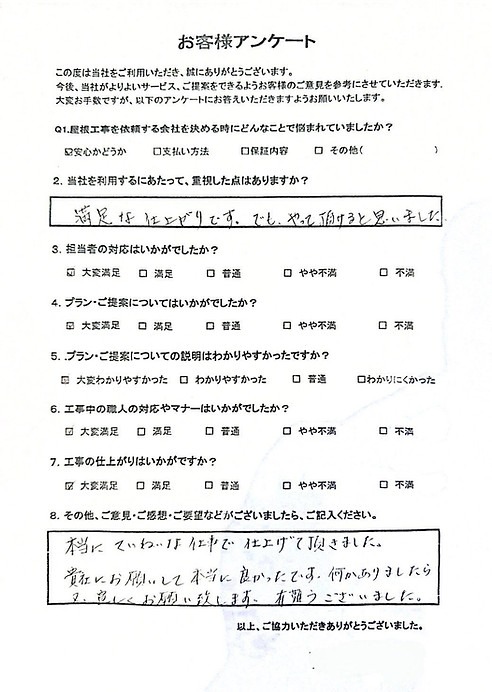 お客様アンケート
この度は当社をご利用いただき、誠にありがとうございます。
今後、当社がよりよいサービス、ご提案をできるようお客様のご意見を参考にさせていただきます.
大変お手数ですが、以下のアンケートにお答えいただきますようお願いいたします。
Q1.屋根工事を依頼する会社を決める時にどんなことで悩まれていましたか？
☑安心かどうか □支払い方法 □保証内容 □ その他( )
2. 当社を利用するにあたって、重視した点はありますか？
満足な仕上がりです。でも、やって頂けると思いました
3. 担当者の対応はいかがでしたか？
☑ 大変満足 □ 満足 □ 普通 □ やや不満 □ 不満
4. プラン・ご提案についてはいかがでしたか？
☑ 大変満足 □ 満足 □ 普通 □ やや不満 □ 不満
5. .プラン・ご提案についての説明はわかりやすかったですか？
☑ 大変わかりやすかった □ わかりやすかった □ 普通 □わかりにくかった
6. 工事中の職人の対応やマナーはいかがでしたか？
☑ 大変満足 □ 満足 □ 普通 □ やや不満 □ 不満
7. 工事の仕上がりはいかがですか？
☑ 大変満足 □ 満足 □ 普通 □ やや不満 □ 不満
8. その他、ご意見・ご感想・ご要望などがございましたら、ご記入ください。
本当に ていねいな仕事で 仕上げて頂きました。
貴社にお願いして本当に良かったです。何かありましたら
又、宜しくお願い致します。有難うございました。
以上、ご協力いただきありがとうございました。